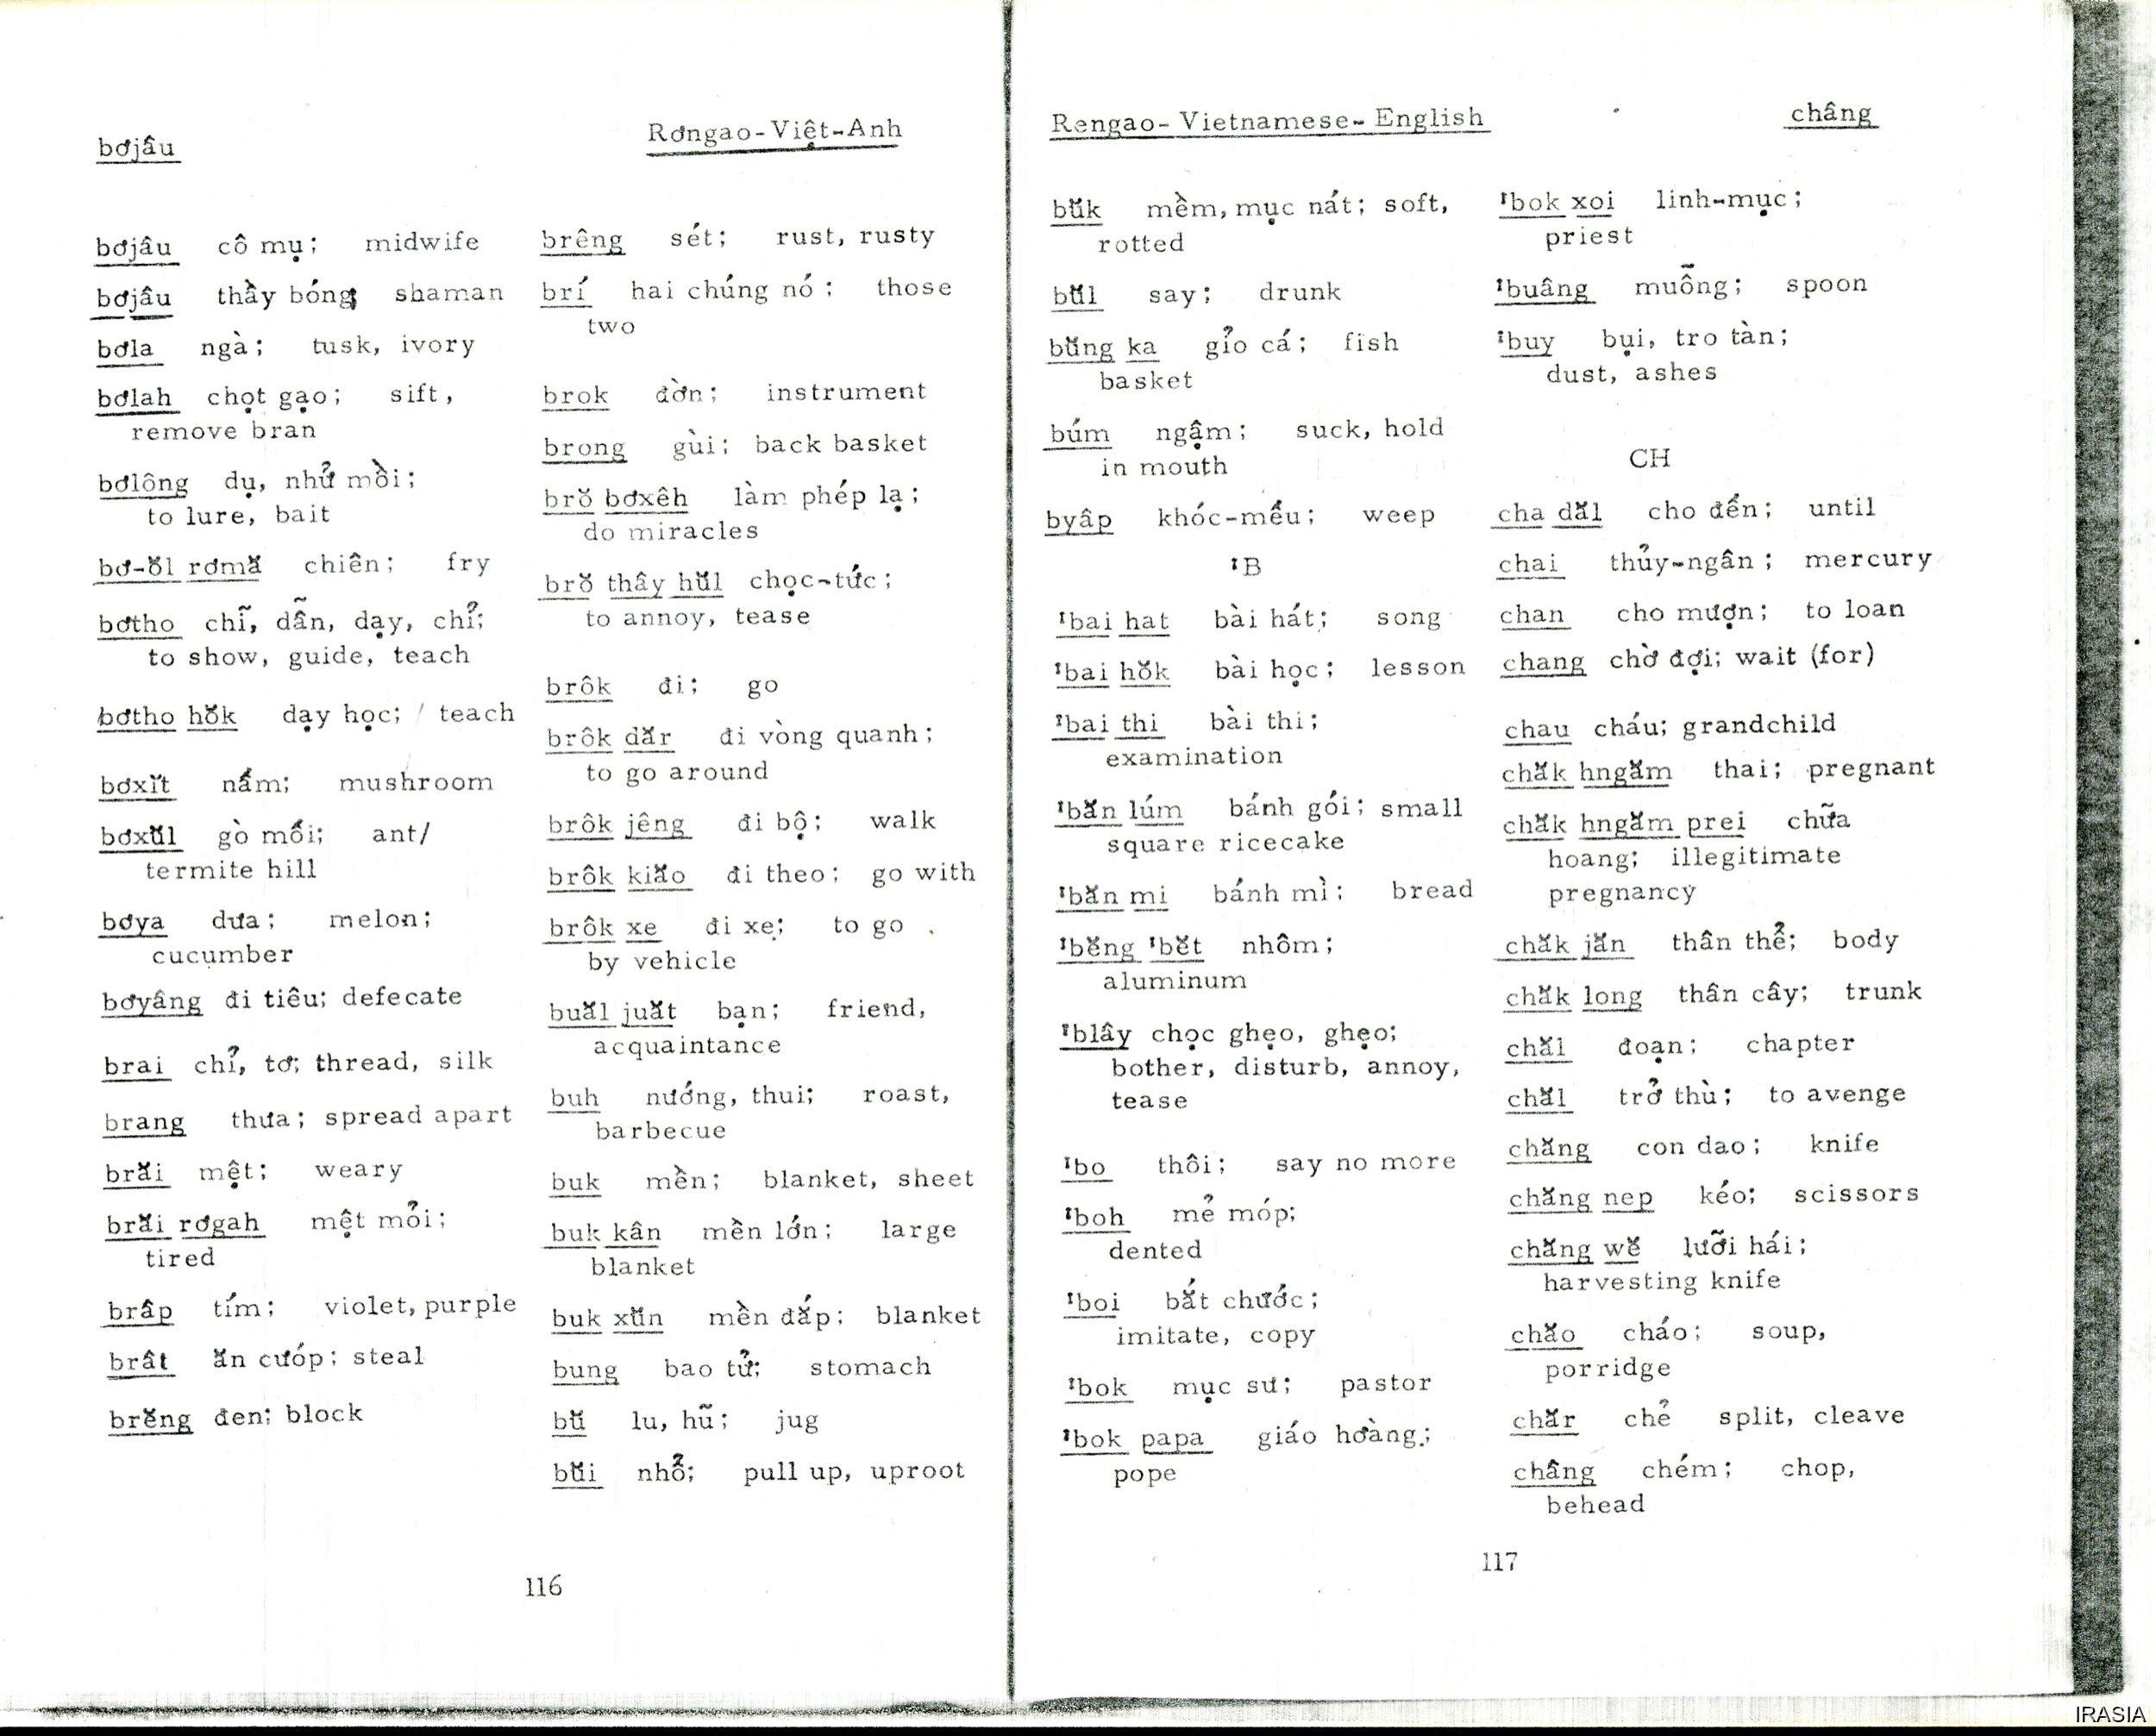 bơjâu
Rơngao-Việt-Anh
bơjâu cô mụ; midwife
bơjâu thầy bóng; shaman
bơla ngà; tusk, ivory
bơlah chọt gạo; sift,
remove bran
bơlông dụ, nhử mồi;
to lure, bait
bơ-ŏl rơmă chiên; fry
bơtho chĩ, dẫn, dạy, chỉ;
to show, guide, teach
bơtho hŏk dạy học; teach
bơxĭt nấm; mushroom
bơxŭl gò mối; ant/
termite hill
bơya dưa; melon;
cucumber
bơyâng đi tiêu; defecate
brai chỉ, tơ; thread, silk
brang thưa; spread apart
brăi mệt; weary
brăi rơgah mệt mỏi;
tired
brâp tím; violet, purple
brât ăn cướp; steal
brĕng đen; block
brêng sét; rust, rusty
brí hai chúng nó; those
two
brok đờn; instrument
brong gùi; back basket
brŏ bơxêh làm phép lạ;
do miracles
brŏ thây hŭl chọc-tức;
to annoy, tease
brôk đi; go
brôk dăr đi vòng quanh;
to go around
brôk jêng đi bộ; walk
brôk kiăo đi theo; go with
brôk xe đi xe; to go
by vehicle
buăl juăt bạn; friend,
acquaintance
buh nướng, thui; roast,
barbecue
buk mền; blanket, sheet
buk kân mền lớn; large
blanket
buk xŭn mền đắp; blanket
bung bao tử; stomach
bŭ lu, hũ; jug
bŭi nhổ; pull up, uproot
116
Rengao-Vietnamese-English
châng
bŭk mềm, mục nát; soft,
rotted
bŭl say; drunk
bŭng ka giỏ cá; fish
basket
búm ngậm; suck, hold
in mouth
byâp khóc-mếu; weep
'B
'bai hat bài hát; song
'bai hŏk bài học; lesson
'bai thi bài thi;
examination
'băn lúm bánh gói; small
square ricecake
'băn mi bánh mì; bread
'bĕng 'bĕt nhôm;
aluminum
'blây chọc ghẹo, ghẹo;
bother, disturb, annoy,
tease
'bo thôi; say no more
'boh mẻ móp;
dented
'boi bắt chước;
imitate, copy
'bok mục sư; pastor
'bok papa giáo hoàng;
pope
'bok xoi linh-mục;
priest
'buâng muỗng; spoon
'buy bụi, tro tàn;
dust, ashes
CH
cha dăl cho đến; until
chai thủy-ngân; mercury
chan cho mượn; to loan
chang chờ đợi; wait (for)
chau cháu; grandchild
chăk hngăm thai; pregnant
chăk hngăm prei chữa
hoang; illegitimate
pregnancy
chăk jăn thân thể; body
chăk long thân cây; trunk
chăl đoạn; chapter
chăl trở thù; to avenge
chăng con dao; knife
chăng nep kéo; scissors
chăng wĕ lưỡi hái;
harvesting knife
chăo cháo; soup,
porridge
chăr chẻ split, cleave
châng chém; chop,
behead
117
IRASIA